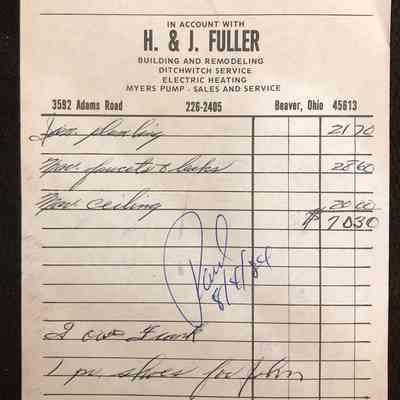 IN ACCOUNT WITH
H. & J. FULLER
BUILDING AND REMODELING
DITCHWITCH SERVICE
ELECTRIC HEATING
MYERS PUMP - SALES AND SERVICE
3592 Adams Road 226-2405 Beaver, Ohio 45613
Jan. 21 70
Nov. faucets & 28 60
Nov. ceiling 20 00
$ 70 30
Paid
8/4/84
I owe Frank
1 pr. shoes for John